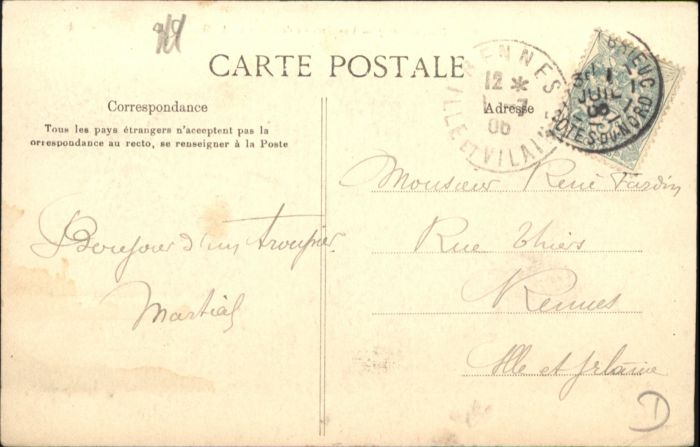 CARTE POSTALE
Correspondance
Tous les pays étrangers n'acceptent pas la
orrespondance au recto, se renseigner à la Poste
Adresse
RENNES
12 *
7
06
ILLE ET VILAINE
BRIEUC
1
JUIL
06
COTES DU NORD
Bonjour d'un troupier
Martial
Monsieur René Jardin
Rue Thiers
Rennes
Ille et Vilaine